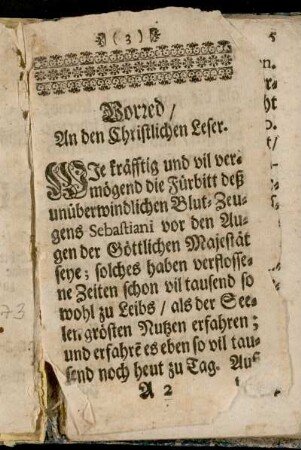 ( 3 )
Vorred /
An den Christlichen Leser.
WIe kräfftig und vil ver-
mögend die Fürbitt deß
unüberwindlichen Blut-Zeu-
gens Sebastiani vor den Au-
gen der Göttlichen Majestät
seye; solches haben verflosse-
ne Zeiten schon vil tausend so
wohl zu Leibs / als der See-
len grösten Nutzen erfahren;
und erfahrē es eben so vil tau-
send noch heut zu Tag. Auf
A 2
5
73